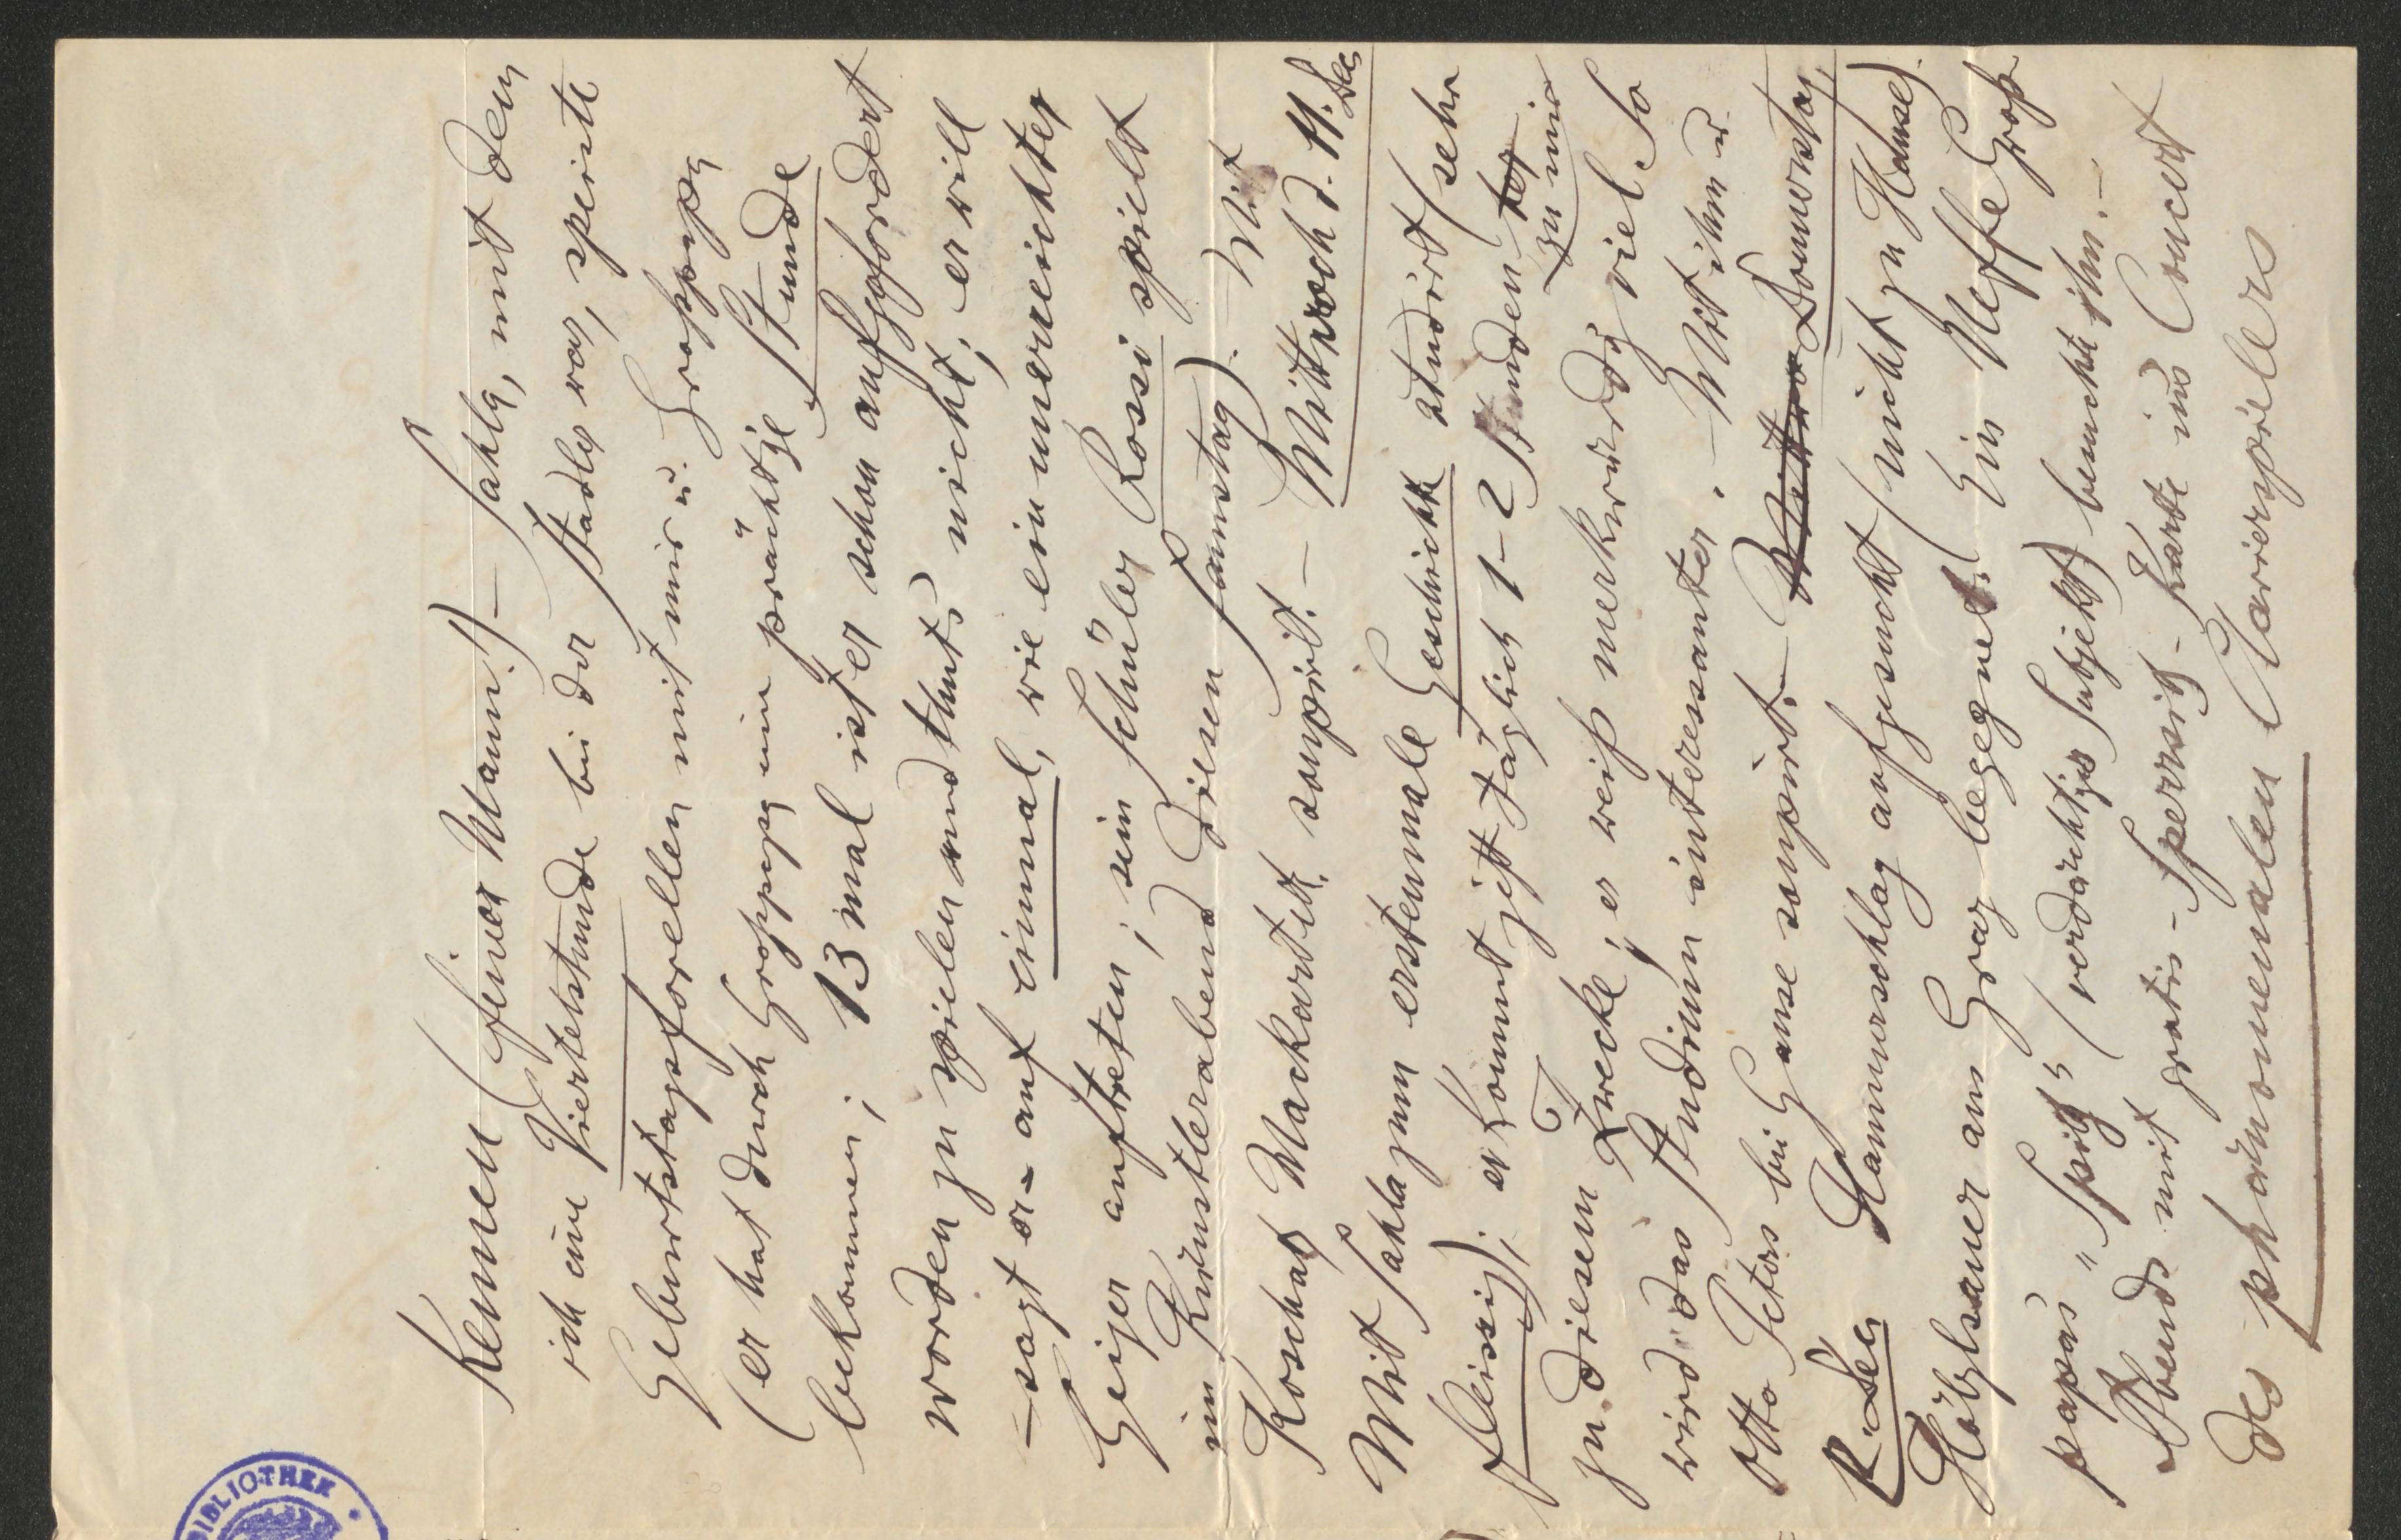 kennen (feiner Mann!) – Sahla, mit dem
ich eine Viertelstunde bei der Stadler war, speiste
Geburtstagsforellen mit mir u. Grosspapa
(er hat durch Grosspapa eine prächtige Stunde
bekommen; 13 mal ist er schon aufgefordert
worden zu spielen und thut's nicht; er will
– sagt er – auf einmal, wie ein unerreichter
Geiger auftreten; sein Schüler Rossi spielt
im Künstlerabend diesen Samstag). – Mit
Koschat, Mackart etc. soupirt. – Mittwoch d. 11. Dec
Mit Sahla zum erstenmale Geschichte studirt (sehr
fleissig); er kommt jetzt täglich 1–2 Stunden her zu mir
zu diesem Zwecke; er weiß merkwürdig viel. So
wird das Studium interessanter. – Mit ihm u.
Otto Peters bei Gause soupirt. – Donnerstag,
12. Dec Hammerschlag aufgesucht (nicht zu Hause).
Hölzlsauer aus Graz begegnet. (Ein Neffe Groß-
papas „Spitz" (verdächtiges Subjekt) besuchte ihn. –
Abends mit gratis-Sperrsitz-Karte ins Concert
des phänomenalen Clavierspielers
BIBLIOTHEK